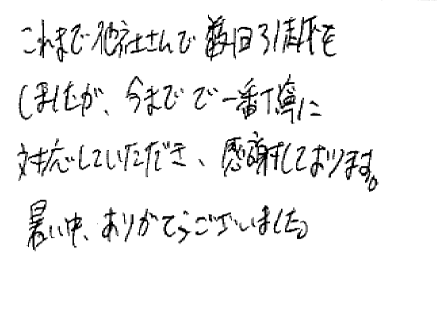 これまで他社さんで数回引越を
しましたが、今までで一番丁寧に
対応していただき、感謝しております。
暑い中、ありがとうございました。